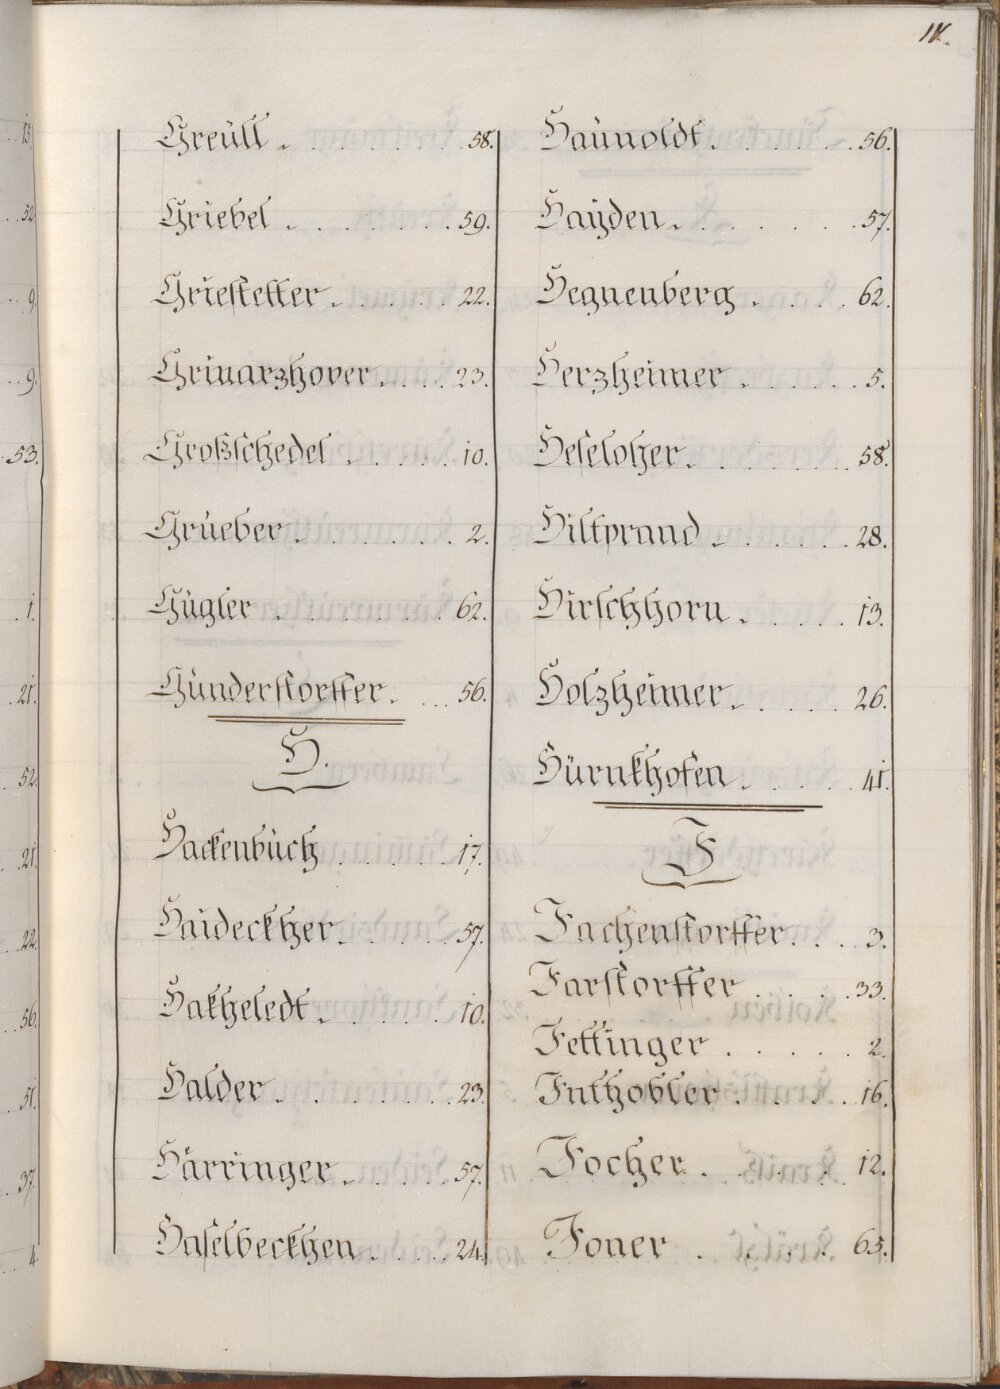 IV.
Greüll . . . . . . . . 58.
Griebel . . . . . . . . 59.
Griestetter . . . . . . 22.
Grinarzhover . . . . 23.
Großschedel . . . . . . 10.
Grüeber . . . . . . . . 2.
Gügler . . . . . . . . 62.
Günderstorffer . . . . 56.
H.
Hackenbüch . . . . . . 17.
Haideckher . . . . . . 57.
Hakheledt . . . . . . 10.
Halder . . . . . . . . 23.
Härringer . . . . . . 57.
Haselbeckhen . . . . . 24.
Haünoldt . . . . . . . 56.
Haÿden . . . . . . . . 57.
Hegnenberg . . . . . 62.
Herzheimer . . . . . . 5.
Heseloher . . . . . . . 58.
Hiltprand . . . . . . 28.
Hirschhorn . . . . . 13.
Holzheimer . . . . . 26.
Hürnkhofen . . . . . . 41.
J
Jachenstorffer . . . 3.
Jarstorffer . . . . 33.
Jettinger . . . . . 2.
Inkhobler . . . . . 16.
Jocher . . . . . 12.
Joner . . . . . 65.
13.
52.
9.
9.
53.
1.
21.
52.
21.
22.
56.
51.
37.
4.